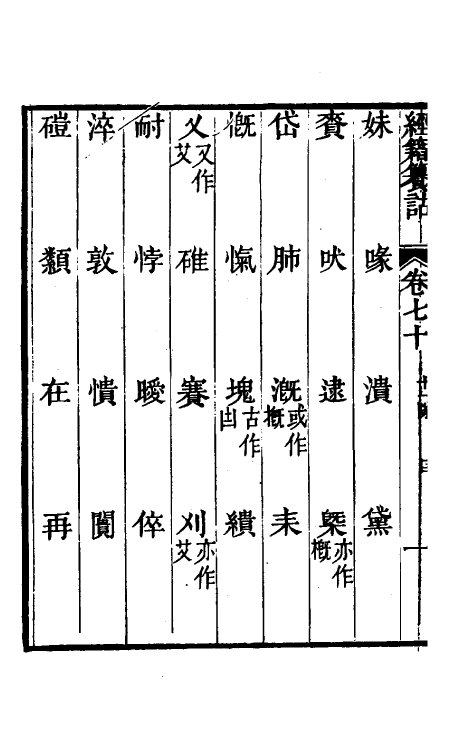 經籍籑詁 卷七十
妹 喙 潰 黛
賚 吠 逮 槩亦作概
岱 肺 溉或作概 耒
慨 愾 塊古作凷 繢
乂又作艾 碓 賽 刈亦作艾
耐 悖 曖 倅
淬 敦 憒 闠
磑 纇 在 再